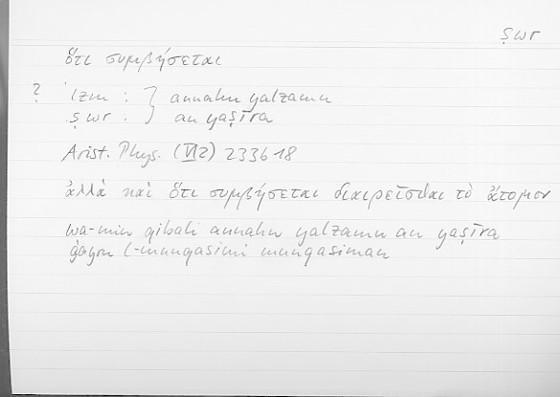 ṣwr
ὅτι συμβήσεται
? lzm : } annahu yalzamu
ṣwr : } an yaṣīra
Arist. Phys. (VI2) 233b18
ἀλλὰ καὶ ὅτι συμβήσεται διαιρεῖσθαι τὸ ἄτομον
wa-min qibali annahu yalzamu an yaṣīra
ġayru l-munqasimi munqasiman